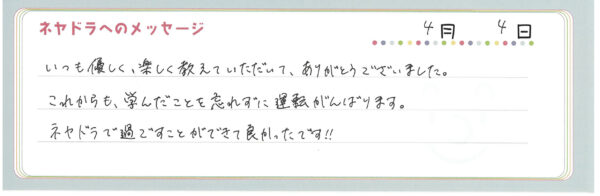 ネヤドラへのメッセージ
4月 4日
いつも優しく、楽しく教えていただいて、ありがとうございました。
これからも、学んだことを忘れずに運転がんばります。
ネヤドラで過ごすことができて良かったです!!